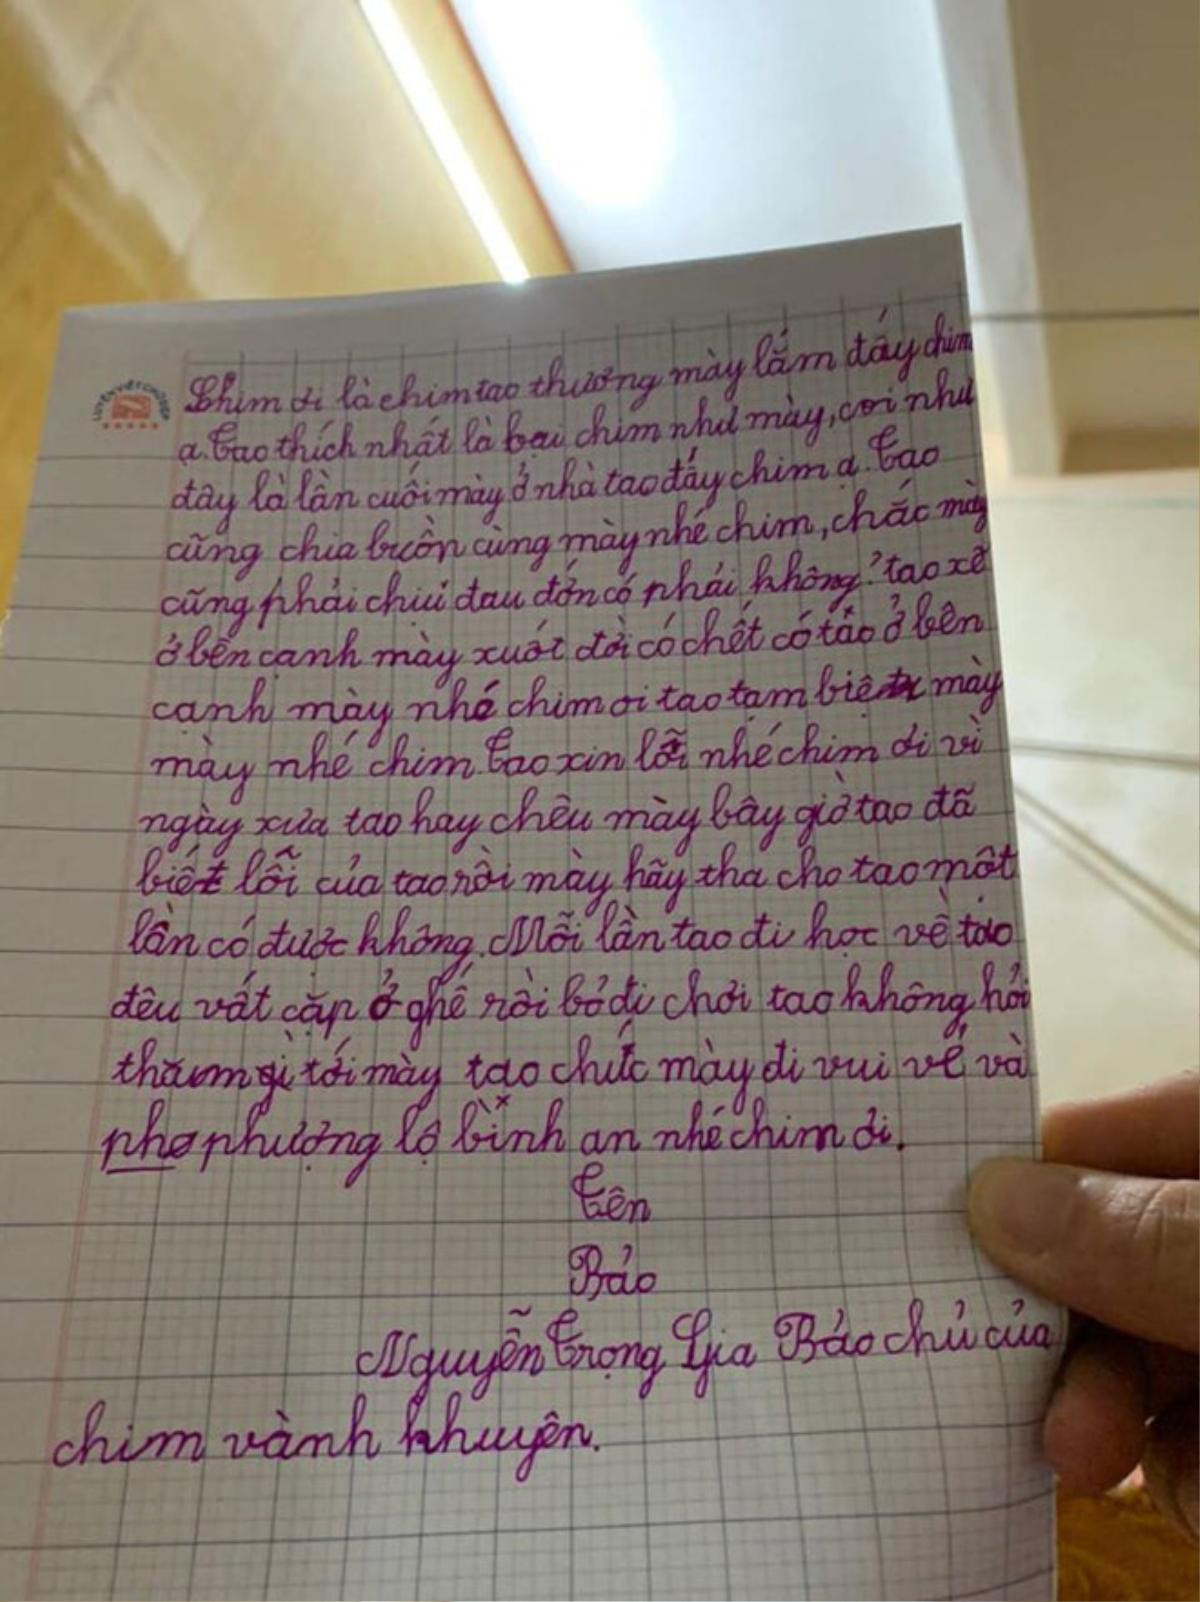 LUYỆN VIẾT CHỮ ĐẸP
Chim ơi là chim tao thương mày lắm đấy chim
ạ. Tao thích nhất là loại chim như mày, coi như
đây là lần cuối mày ở nhà tao đấy chim ạ. Tao
cũng chia buồn cùng mày nhé chim, chắc mày
cũng phải chịu đau đớn có phải không? tao xẽ
ở bên cạnh mày xuốt đời có chết có tao ở bên
cạnh mày nhé chim ơi tao tạm biệt mày
mày nhé chim. Tao xin lỗi nhé chim ơi vì
ngày xưa tao hay chêu mày bây giờ tao đã
biết lỗi của tao rồi mày hãy tha cho tao một
lần có được không. Mỗi lần tao đi học về tao
đều vất cặp ở ghế rồi bỏ đi chơi tao không hỏi
thăm gì tới mày tao chúc mày đi vui vẻ và
pho phượng lộ bình an nhé chim ơi.
Tên
Bảo
Nguyễn Trọng Gia Bảo chủ của
chim vành khuyên.